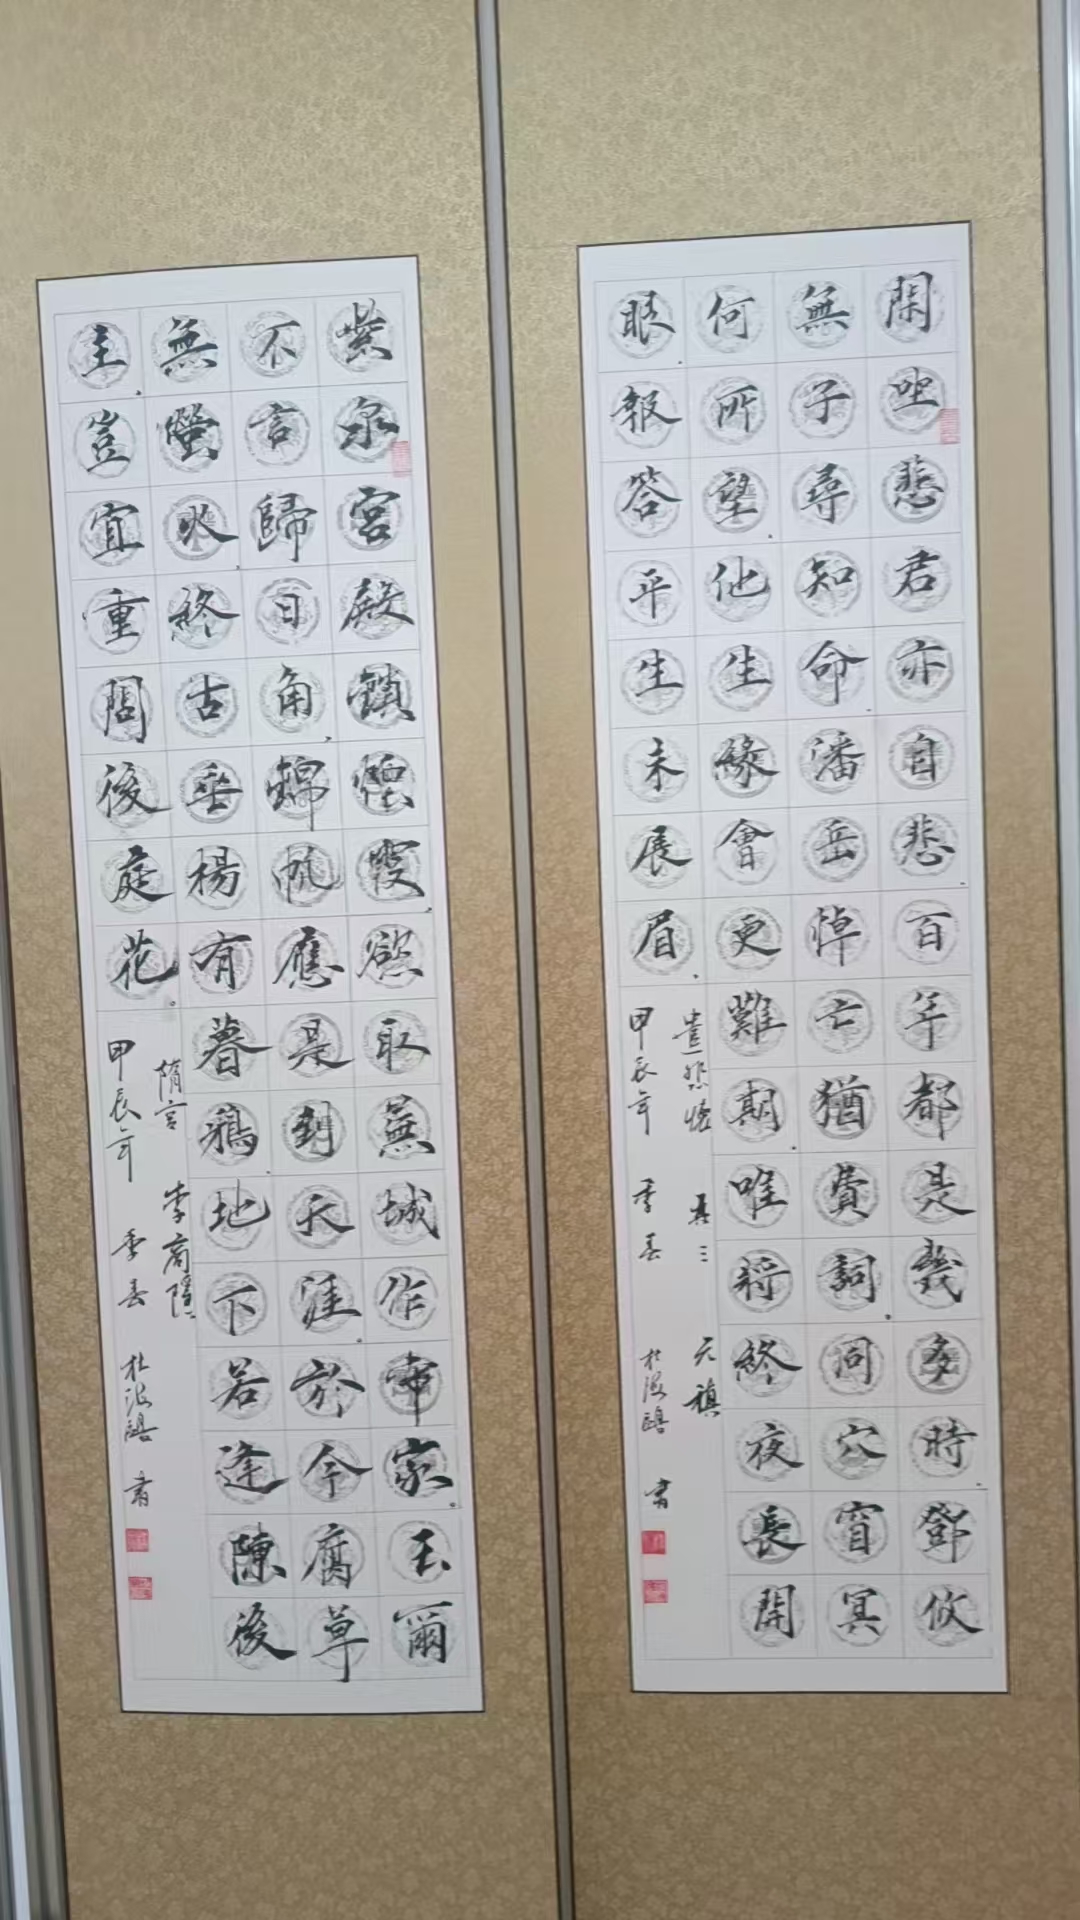 閑坐悲君亦自悲百年都是幾多時鄧攸
無子尋知命潘岳悼亡猶費詞同穴窅冥
何所望他生緣會更難期唯將終夜長開
眼報答平生未展眉
遣悲懷 其三 元稹
甲辰年 季春 杜海鷗 書
紫泉宮殿鎖煙霞慾取蕪城作帝家。玉爾
不言歸日角錦帆應是到天涯於今腐草
無螢火終古垂楊有暮鴉地下若逢陳後
主豈宜重問後庭花。
隋宮 李商隱
甲辰年 季春 杜海鷗 書